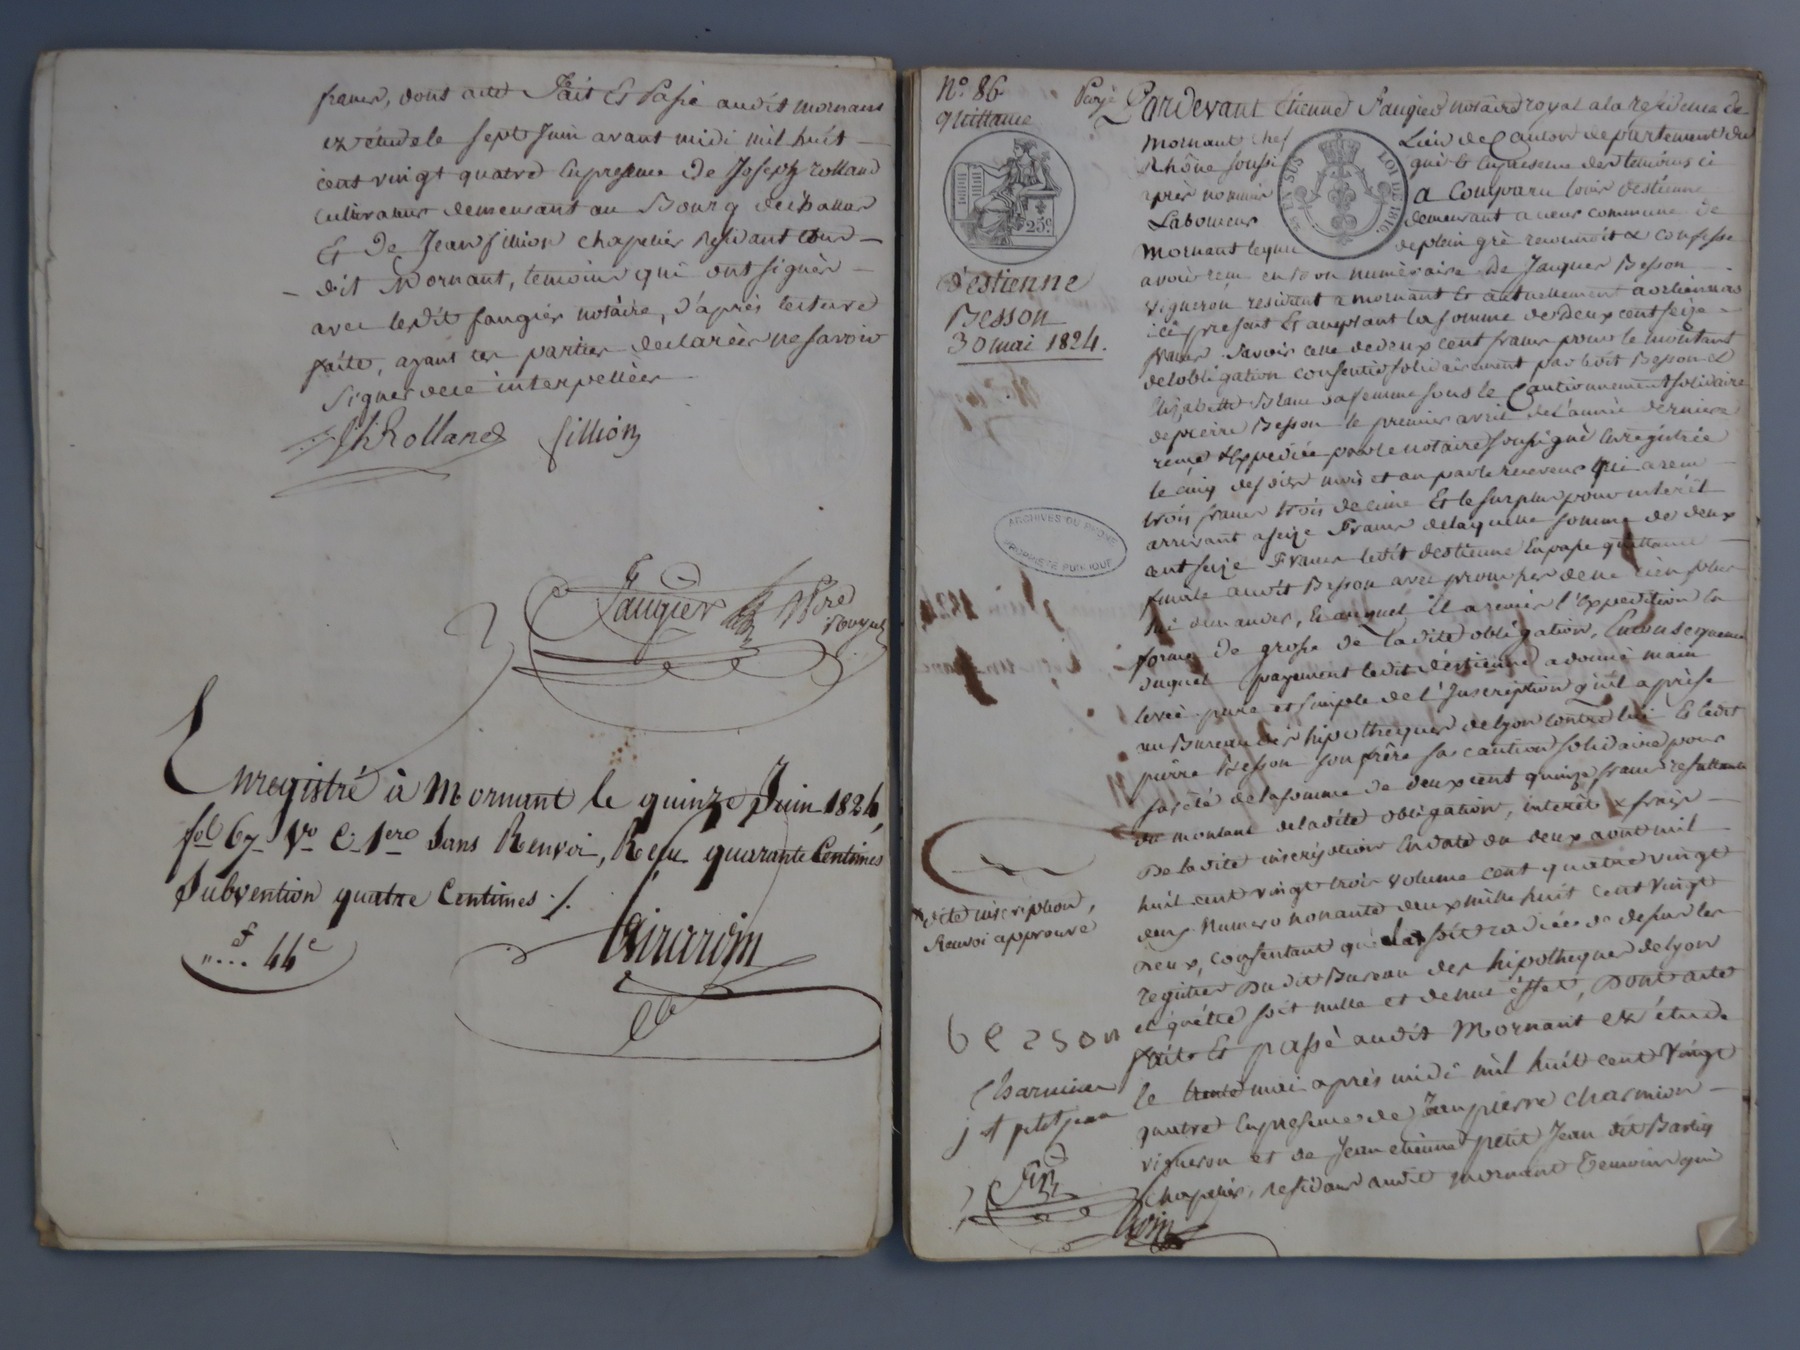 francs, dont acte Fait Et Passé audit mornant
en étude le sept Juin avant midi mil huit
cent vingt quatre En presence de Joseph rolland
cultivateur demeurant au Bourg
Et de Jean fillion chapelier residant
dit Mornant, temoins qui ont signés
avec ledit faugier notaire, d'après lecture
faite, ayant les parties declarées ne savoir
signer de ce interpellées
Jh Rolland fillion
Faugier Nre royal
Enregistré à Mornant le quinze Juin 1824,
fol 67 Vo C. 1ere Sans Renvoi, Reçu quarante Centimes
Subvention quatre Centimes ./.
f 44c
Girardin
No. 86
quittance
25c
d'estienne
Besson
30 mai 1824.
ARCHIVES DU RHÔNE
PROPRIÉTÉ PUBLIQUE
LOI DE 1816
Pardevant Etienne Faugier notaire royal a la residence de
Mornant chef Lieu de Canton departement du
Rhône soussigné Et En presence des temoins ci
après nommés a Comparu louis destienne
Laboureur demeurant a commune de
Mornant lequel de plein gré reconnoit & confesse
avoir reçu en bon numéraire de Jacques Besson
vigneron residant a mornant Et actuellement
ici present Et acceptant la somme de deux cent seize
francs Savoir celle de deux cent francs pour le montant
de l'obligation consentie solidairement par ledit Besson &
Elizabette Blanc sa femme sous le Cautionnement solidaire
de pierre Besson le premier avril de l'année derniere
reçue & Expediée par le notaire soussigné Enregistrée
le cinq desdits mois et an par le receveur qui a reçu
trois francs trois decime Et le surplus pour intérêt
arrivant a seize Francs de laquelle somme de deux
cent seize Francs ledit destienne En passe quittance
finale audit Besson avec promesse de ne rien plus
lui demander, Et auquel il a remis l'Expedition En
forme de grosse de Ladite obligation, En consequence
duquel payement ledit d'estienne a donné main
levée pure et simple de l'Inscription qu'il a prise
au Bureau des hipotheques de lyon contre lui Et ledit
pierre Besson son frère sa caution solidaire pour
sureté de la somme de deux cent quinze francs resultante
du montant de ladite obligation, interêt & frais
De ladite inscription En date du deux avril mil
huit cent vingt trois volume cent quatre vingt
deux Numero nonante deux mille huit cent vingt
Deux, consentant qu'elle soit radiée de dessus les
registres Du dit Bureau des hipotheques de lyon
et qu'elle soit nulle et de nul effet, Dont acte
fait Et passé audit Mornant En étude
le trente mai après midi mil huit cent Vingt
quatre En presence de Jean pierre Charmion
vigneron et de Jean etienne petit Jean dit
chapelier, residans audit mornant Temoins qui
dite inscription,
Renvoi approuvé
besson
Charmion
petitjean